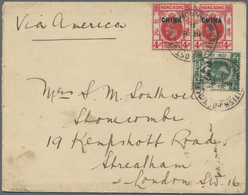 Via America
HONG KONG HONG KONG
CHINA CHINA
Mrs S. M. Southwell
Stonecombe
19 Kempshott Road
Streatham
London S.W.16